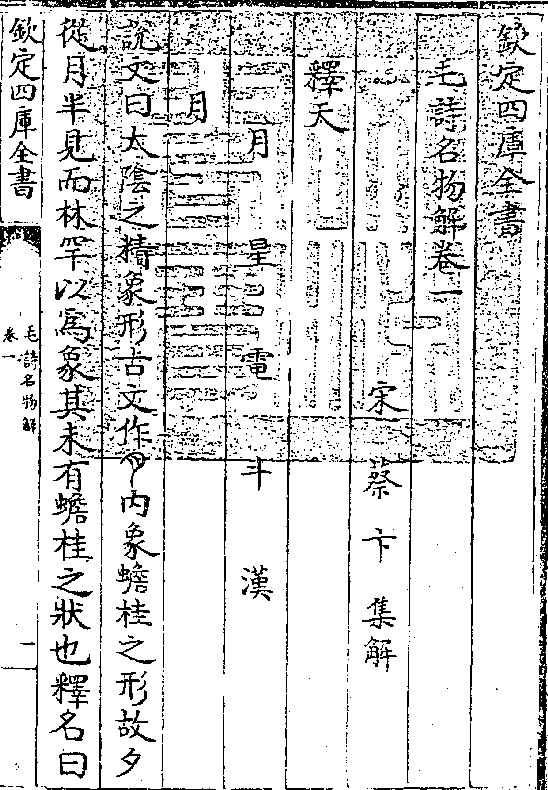 欽定四庫全書
毛詩名物解卷一
宋 蔡卞 集解
釋天
月 星 電 斗 漢
月
說文曰太陰之精象形古文作內象蟾桂之形故夕
從月半見而林罕以為象其未有蟾桂之狀也釋名曰
欽定四庫全書
毛詩名物解
卷一
一